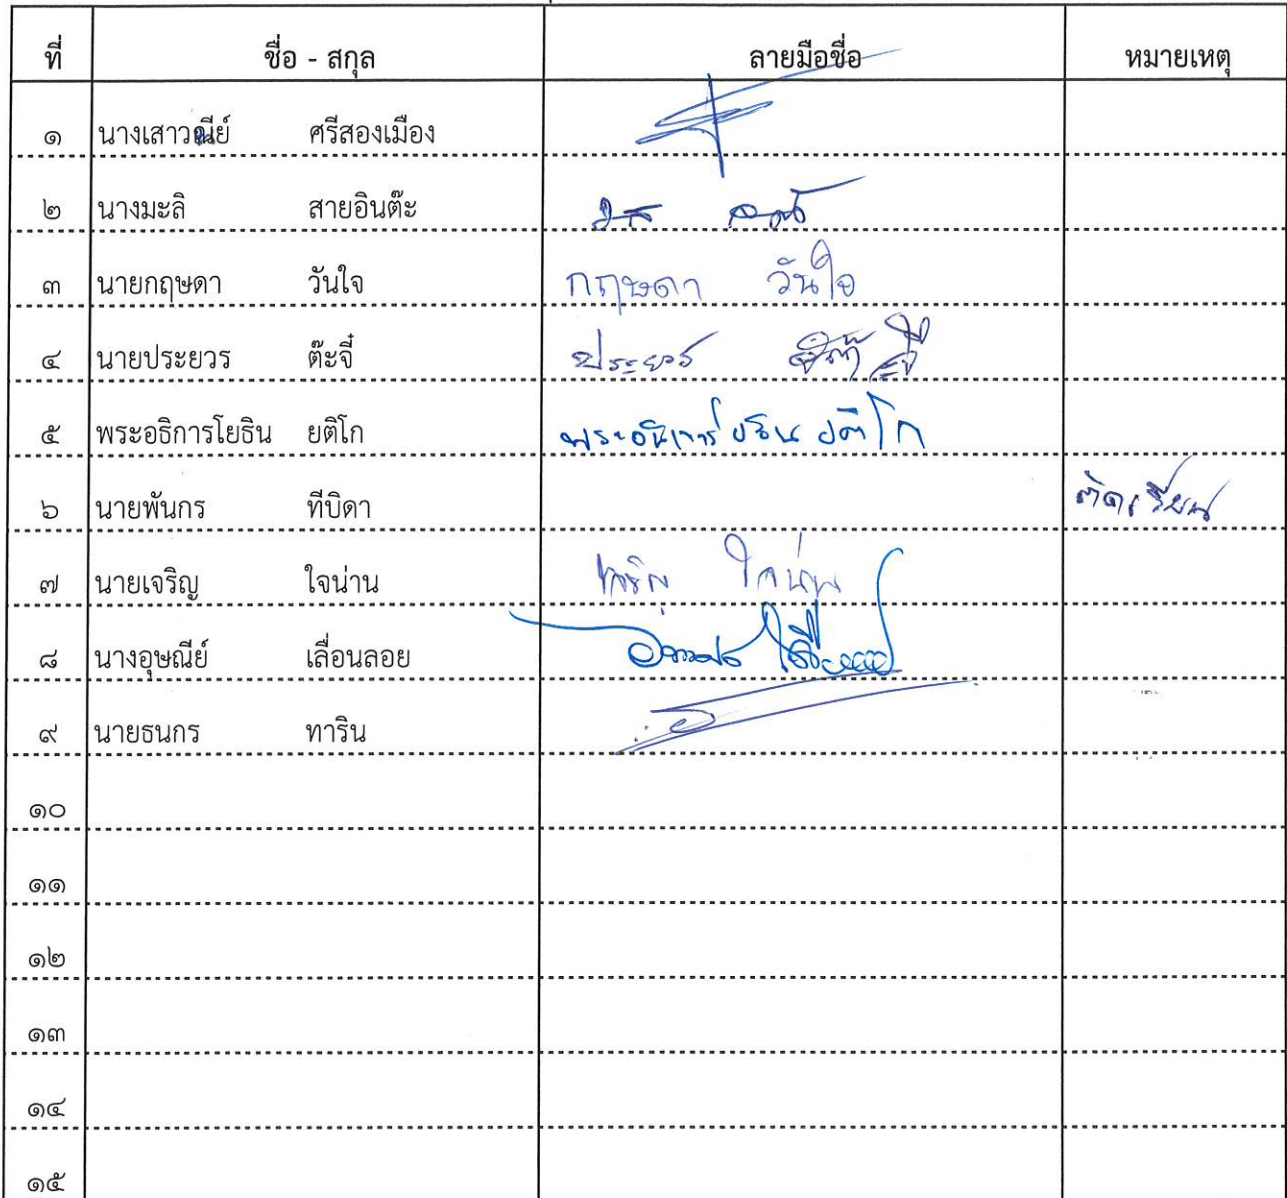 ที่ ชื่อ - สกุล ลายมือชื่อ หมายเหตุ
๑ นางเสาวณีย์ ศรีสองเมือง
๒ นางมะลิ สายอินต๊ะ
๓ นายกฤษดา วันใจ กฤษดา วันใจ
๔ นายประยวร ต๊ะจี๋ ประยวร
๕ พระอธิการโยธิน ยติโก พระอธิการโยธิน ยติโก
๖ นายพันกร ทีบิดา ติดเรียน
๗ นายเจริญ ใจน่าน เจริญ ใจน่าน
๘ นางอุษณีย์ เลื่อนลอย
๙ นายธนกร ทาริน
๑๐
๑๑
๑๒
๑๓
๑๔
๑๕